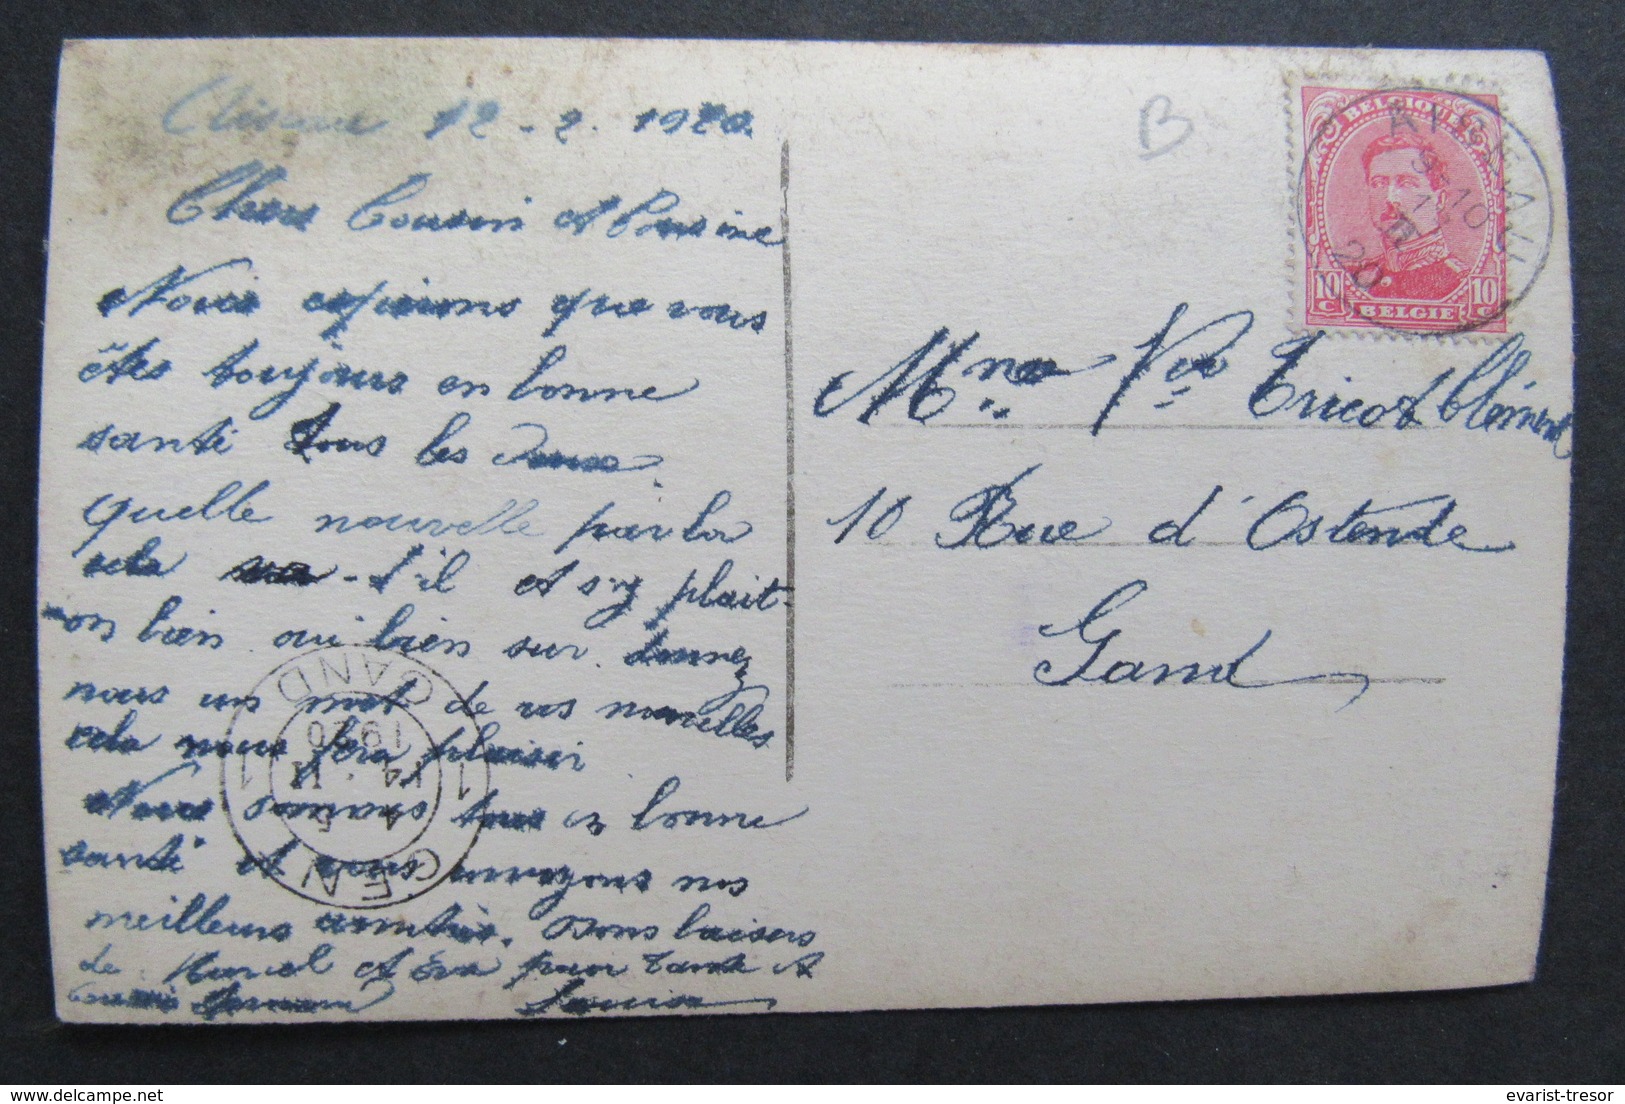 12 - 2. 1920.
Chers Cousin et Cousine
Nous espérons que vous
êtes toujours en bonne
santé tous les deux.
quelle nouvelle par la
cela va-t'il et s'y plait-
on bien oui bien sur. donnez
nous un mot de vos nouvelles
cela nous fera plaisir
Nous sommes tous en bonne
santé et vous envoyons nos
meilleurs amitiés. Bons baisers
de Marcel et Eva pour tante et
Cousin Germain Louisa
B
BELGIQUE
10 c 10 c
BELGIE
9-10
20
Mme Vve Tricot Clément
10 Rue d'Ostende
Gand
GAND
1920
1 14 · II 1
GENT
evarist-tresor
delcampe.net